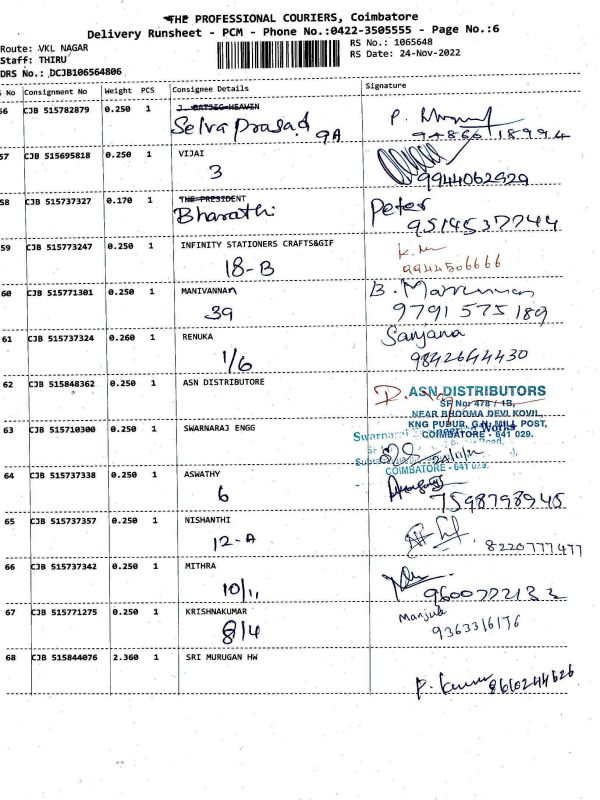 THE PROFESSIONAL COURIERS, Coimbatore
Delivery Runsheet - PCM - Phone No.:0422-3505555 - Page No.:6
Route: VKL NAGAR
RS No.: 1065648
Staff: THIRU
RS Date: 24-Nov-2022
DRS No.: DCJB106564806
S No Consignment No Weight PCS Consignee Details Signature
56 CJB 515782879 0.250 1
Selva Prasad 9A
P.
94866 18994
57 CJB 515695818 0.250 1 VIJAI
3
9944062929
58 CJB 515737327 0.170 1 THE PRESIDENT
Bharathi
Peter
9514537744
59 CJB 515773247 0.250 1 INFINITY STATIONERS CRAFTS&GIF
18-B
9944506666
60 CJB 515771301 0.250 1 MANIVANNAN
39
B.
9791 575 189
61 CJB 515737324 0.260 1 RENUKA
1/6
Sanjana
9842644430
62 CJB 515848362 0.250 1 ASN DISTRIBUTORE
ASN DISTRIBUTORS
SF No: 478 / 1B,
NEAR BHOOMA DEVI KOVIL,
KNG PUDUR, G.N. MILL POST,
COIMBATORE - 641 029.
63 CJB 515710300 0.250 1 SWARNARAJ ENGG
Works
Road,
COIMBATORE - 641 029.
64 CJB 515737338 0.250 1 ASWATHY
6
7598798945
65 CJB 515737357 0.250 1 NISHANTHI
12-A
8220777477
66 CJB 515737342 0.250 1 MITHRA
10/11
9600722133
67 CJB 515771275 0.250 1 KRISHNAKUMAR
8/4
Manjula
9363316176
68 CJB 515844076 2.360 1 SRI MURUGAN HW
P. Kumar